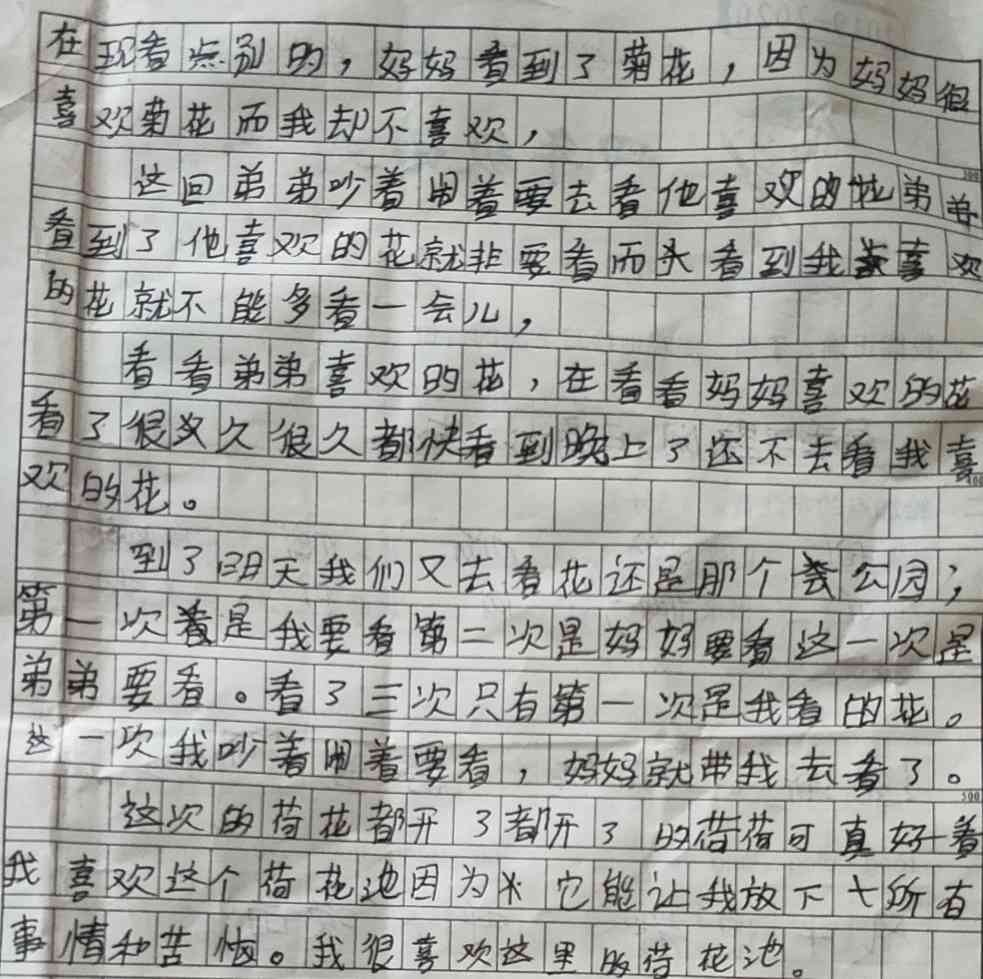 在现看点别的，妈妈看到了菊花，因为妈妈很
喜欢菊花而我却不喜欢，
这回弟弟吵着闹着要去看他喜欢的花弟弟
看到了他喜欢的花就非要看而 看到我 喜欢
的花就不能多看一会儿，
看看弟弟喜欢的花，在看看妈妈喜欢的花
看了很久很久都快看到晚上了还不去看我喜
欢的花。
到了明天我们又去看花还是那个 公园，
第一次看是我要看第二次是妈妈要看这一次是
弟弟要看。看了三次只有第一次是我看的花。
这一次我吵着闹着要看，妈妈就带我去看了。
500
这次的荷花都开了都开了的荷荷可真好看
我喜欢这个荷花池因为 它能让我放下 所有
事情和苦恼。我很喜欢这里的荷花池。